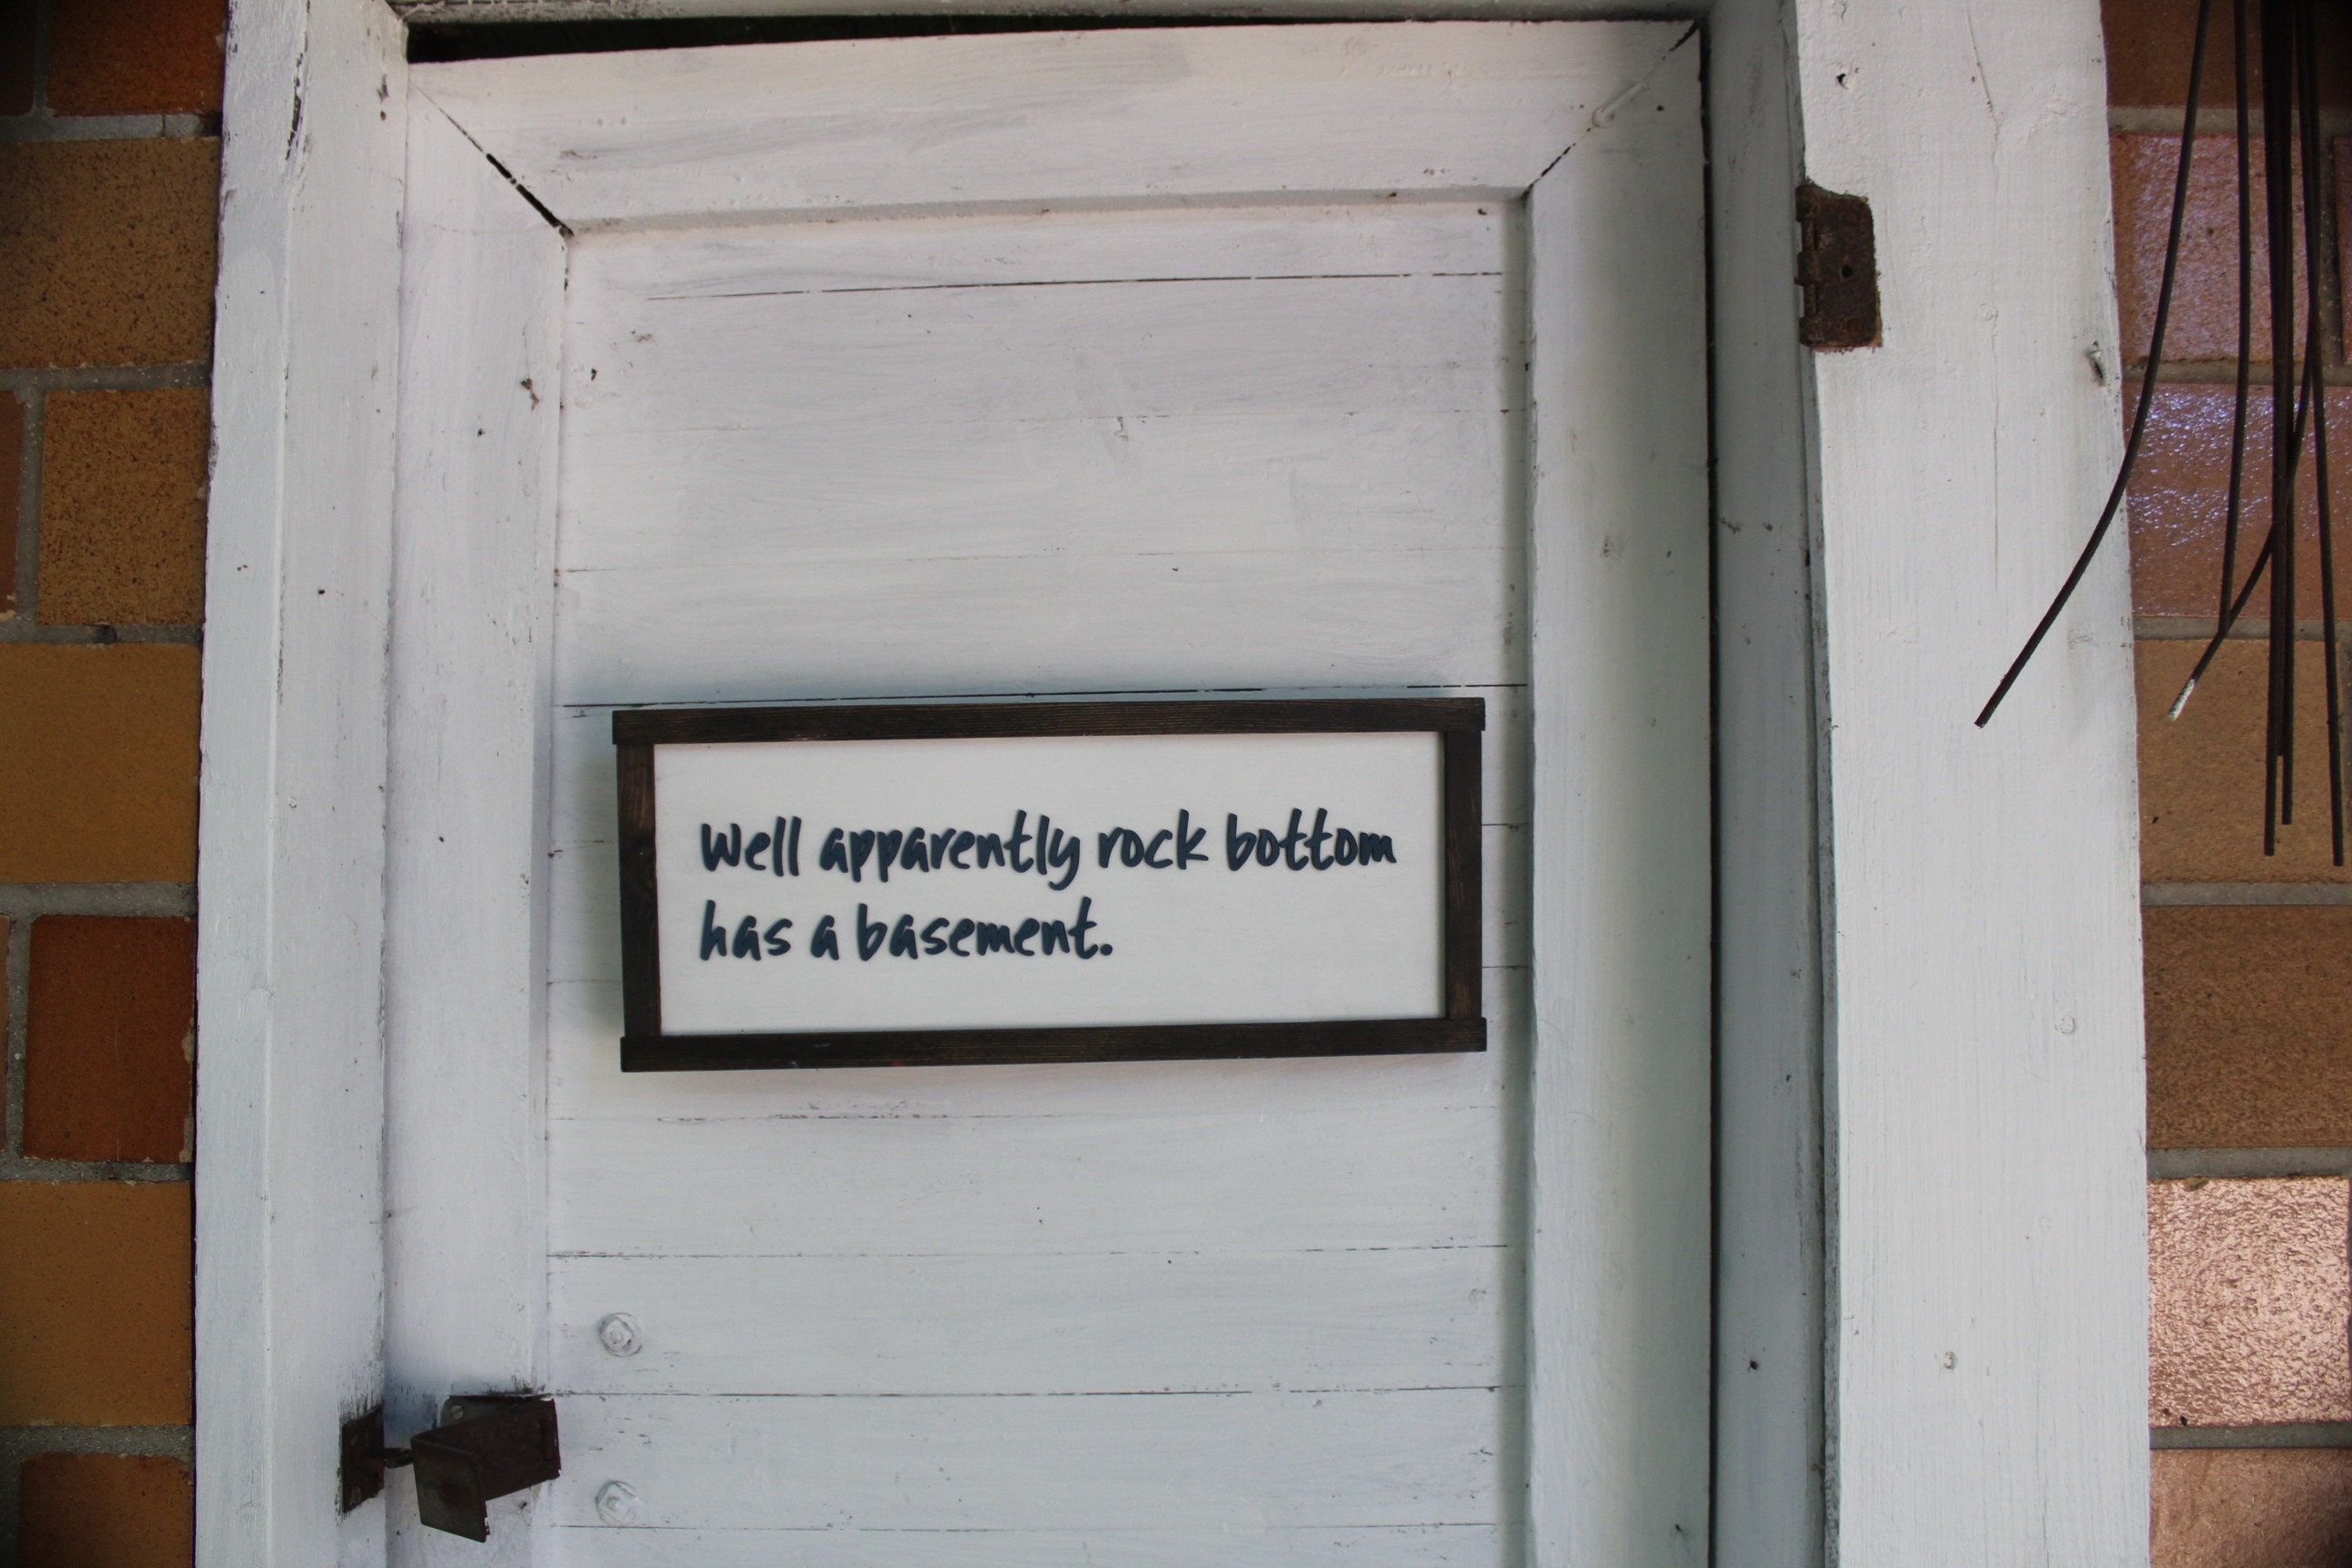 Well apparently rock bottom
has a basement.